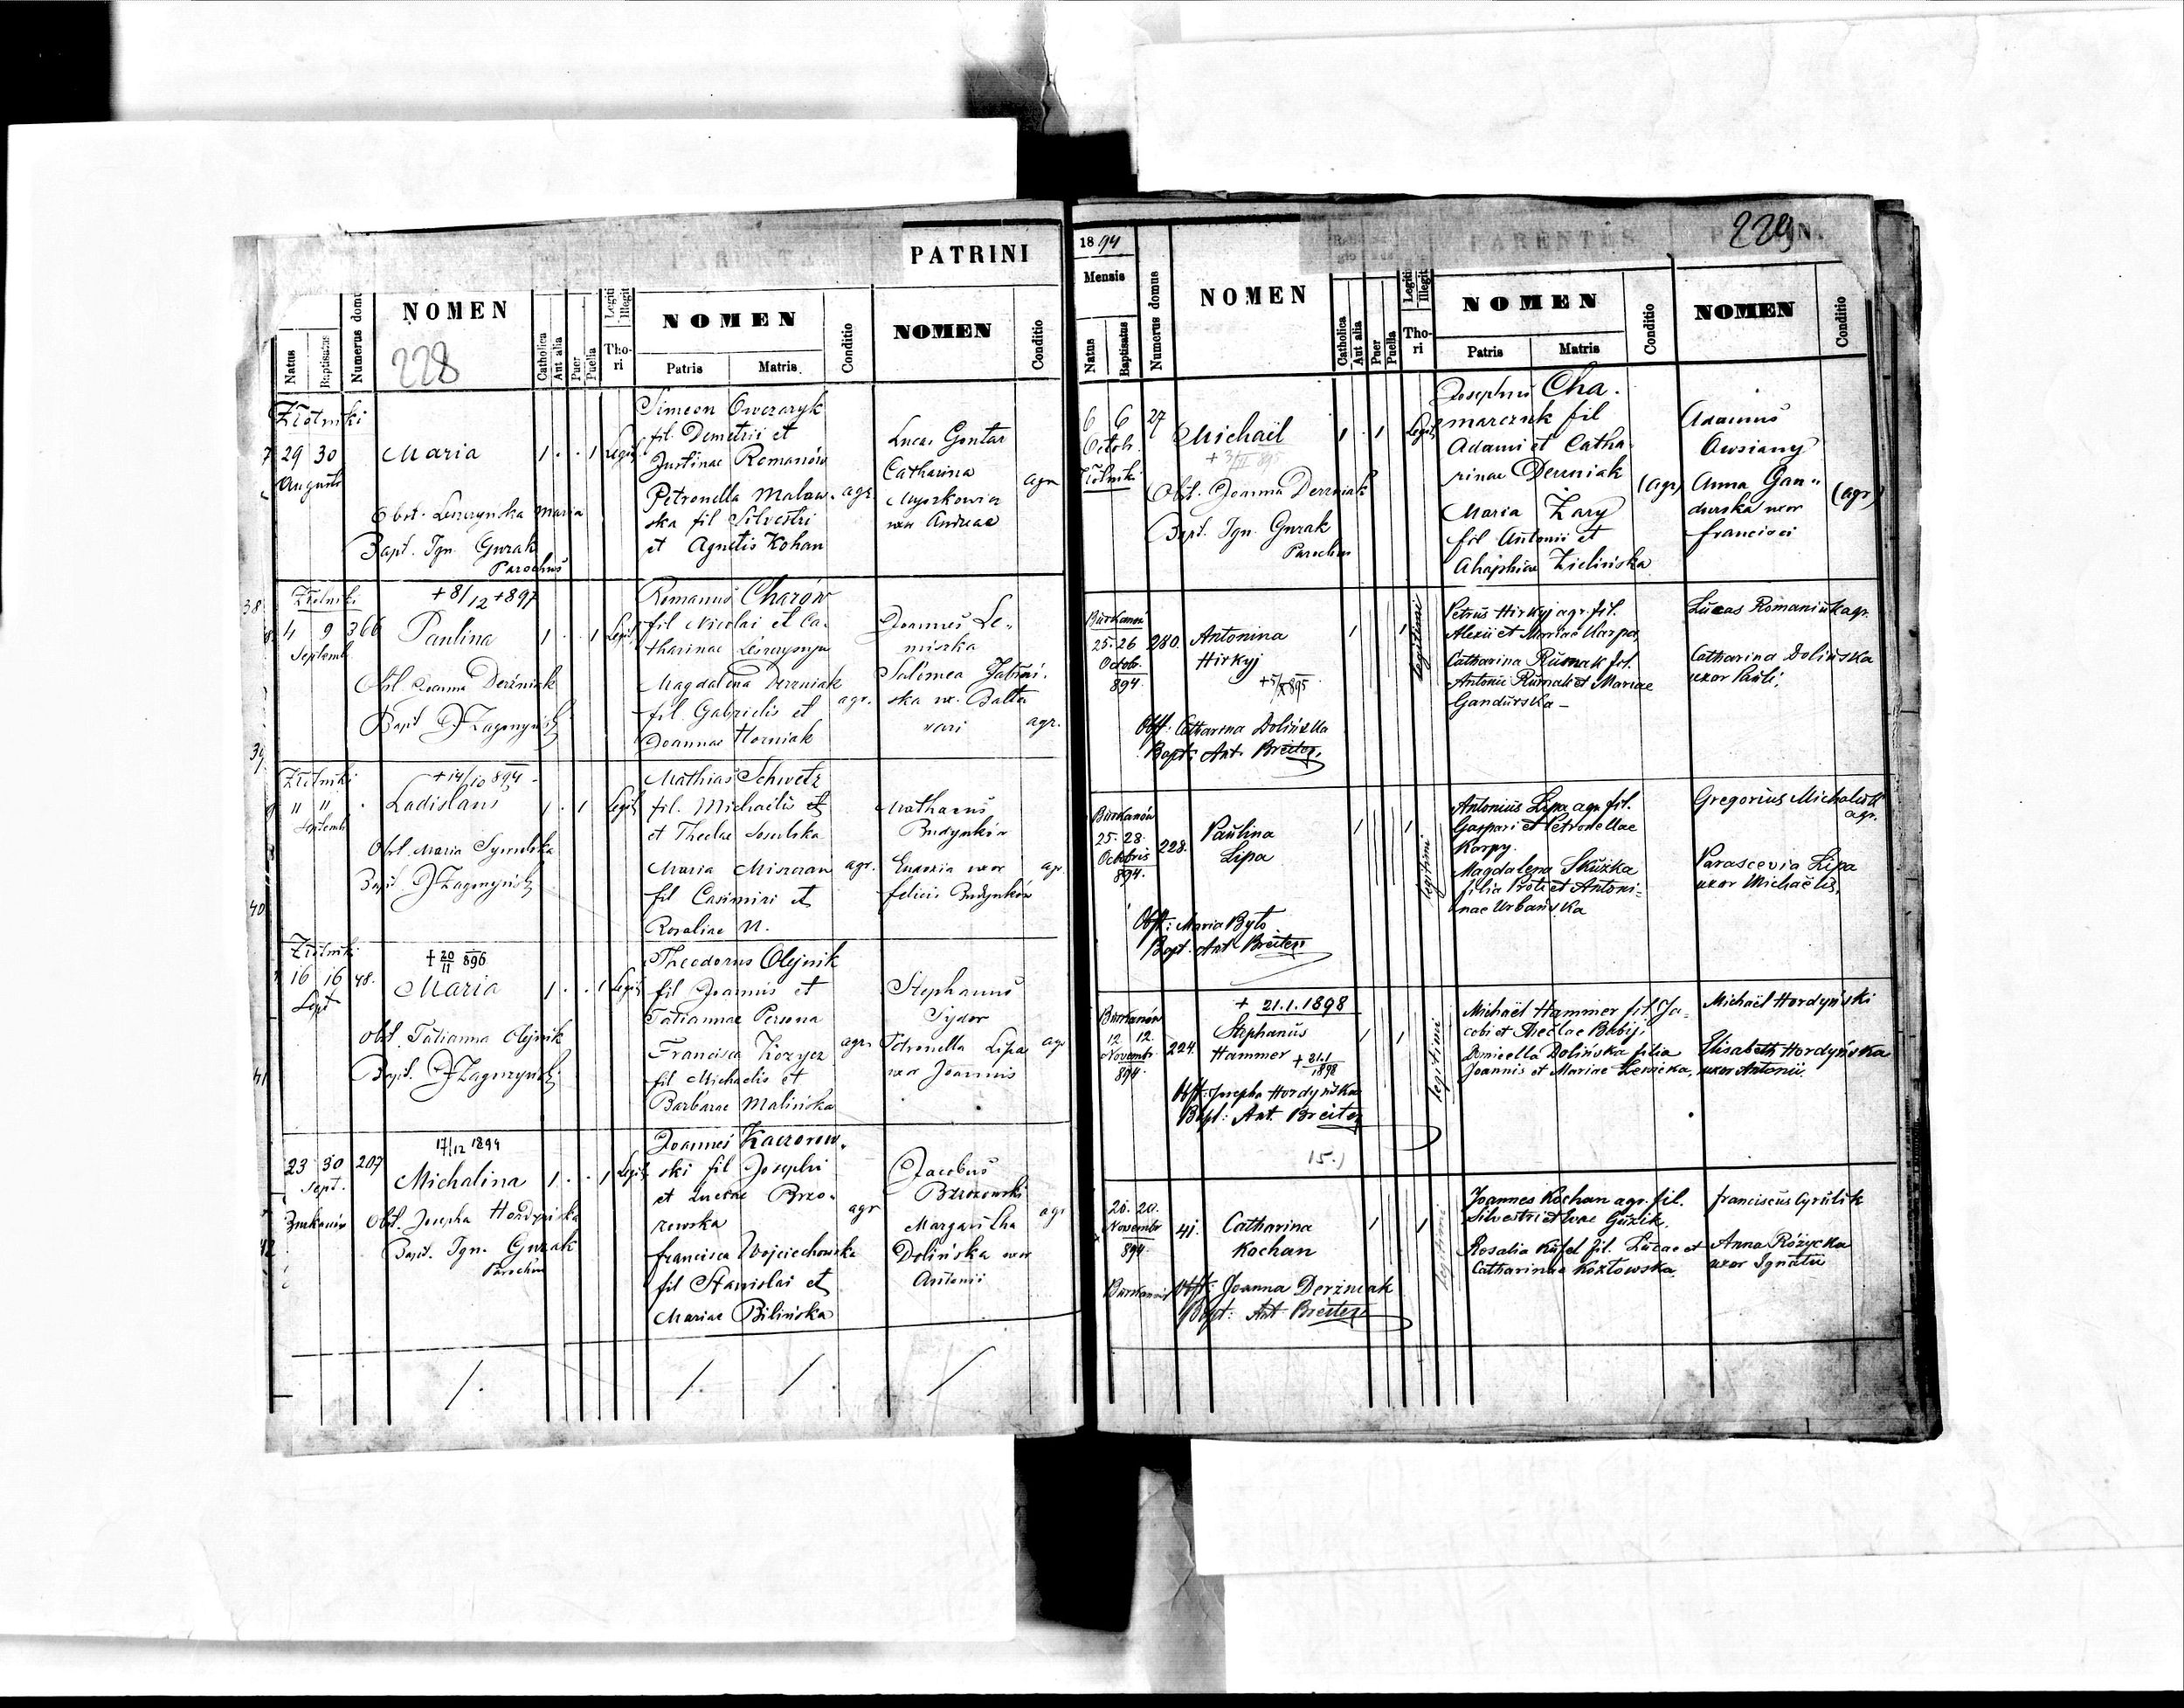 PATRINI
NOMEN
228
NOMEN
NOMEN
Natus
Baptisatus
Numerus domus
Catholica
Aut alia
Puer
Puella
Legiti
Illegit
Thori
Patris
Matris
Conditio
Conditio
Złotniki
29 30
Augusti
Maria
1 . . 1 Legit.
Obst. Leszczyńska Maria
Bapt. Ign. Gurak
Parochus
Simeon Owczaryk
fil. Demetrii et
Justinae Romanów
Petronella Malaw-
ska fil Silvestri
et Agnetis Kohan
agr.
Lucas Gontar
Catharina
Myszkowia
uxor Andreae
agr
38.
Złotniki
4 9 366
Septemb.
+8/12 +897
Paulina
1 . . 1 Legit.
Obst. Joanna Derżniak
Bapt.
Romanus Charów
fil Nicolai et Ca-
tharinae
Magdalena Derzniak
fil. Gabrielis et
Joannae Horniak
agr.
Joannes Le-
miszka
Salomea
ska ux. Balta
zari
agr.
39
Złotniki
9 " "
Septemb
+14/10 894
Ladislaus
1 . 1 Legit
Obst. Maria
Bapt.
Mathias Schwetz
fil. Michaëlis et
et Theclae
Maria Miszczan
fil Casimiri et
Rosaliae N.
agr.
Mathaeus
Budynków
uxor
felicis Budynków
agr
40
Złotniki
16 16 48.
Sept
+20/11 896
Maria
1 . . 1 Legit
Obst. Tatianna Olejnik
Bapt.
Theodorus Olejnik
fil Joannis et
Tatiannae Persona
Francisca Kozycz
fil Michaelis et
Barbarae Malińska
agr.
Stephanus
Sydor
Petronella Lipa
uxor Joannis
agr
41
23 30 207
Sept.
Burkanów
17/12 1894
Michalina
1 . . 1 Legit
Obst. Josepha Hordyńska
Bapt. Ign. Gurak
Parochus
Joannes Kaczorow-
ski fil Josephi
et Luciae Brzo-
zowska
francisca Wojciechowska
fil Stanislai et
Mariae Bilińska
agr
Jacobus
Brzozowski
Margaritha
Dolińska uxor
Antonii
agr
42
229
1894
Mensis
Natus
Baptisatus
Numerus domus
NOMEN
Catholica
Aut alia
Puer
Puella
Legiti
Illegit
Thori
PARENTES
NOMEN
Patris
Matris
Conditio
NOMEN
Conditio
6 6 27
Octob.
Złotniki
Michaël
+ 3/II 895
1 . 1 Legit
Obst. Joanna Derzniak
Bapt. Ign. Gurak
Parochus
Josephus Cha-
marczuk fil
Adami et Catha-
rinae Derzniak
Maria Zary
fil Antonii et
Ahaphiae Zielińska
(agr)
Adamus
Owsiany
Anna Gan-
durska uxor
francisci
(agr)
Burkanów
25. 26 280.
Octob.
894.
Antonina
Hirkyj
+5/X 895
legitimi
Obst: Catharina Dolińska
Bapt: Ant. Breiter
Petrus Hirkyj agr. fil.
Alexii et Mariae Karpa,
Catharina Rumak fil.
Antonii Rumak et Mariae
Gandurska-
Lucas Romaniuk agr.
Catharina Dolińska
uxor Pauli.
Burkanów
25. 28. 228.
Octobris
894.
Paulina
Lipa
legitimi
Obst: Maria Było
Bapt. Ant Breiter
Antonius Lipa agr. fil.
Gaspari et Petronellae
Karpy.
Magdalena Skużka
filia Proti et Antoni=
nae Urbańska
Gregorius Michaluk
agr.
Parascevia Lipa
uxor Michaëlis,
Burkanów
12. 12. 224.
Novembr.
894.
+ 21.1.1898
Stephanus
Hammer + 21.1/1898
legitimi
Obst: Josepha Hordyńska
Bapt: Ant. Breiter
Michaël Hammer fil. Ja=
cobi et Theclae Babij,
Domicella Dolińska filia
Joannis et Mariae Lewicka,
Michaël Hordyński
Elisabeth Hordyńska
uxor Antonii.
15.)
20. 20. 41.
Novembr
894.
Burkanów
Catharina
Kochan
legitimi
Obst: Joanna Derżniak
Bapt: Ant Breiter
Joannes Kochan agr. fil.
Silvestri et Evae Guzik.
Rosalia Kufel fil. Lucae et
Catharinae Kozłowska.
franciscus Cyrulik
Anna Różycka
uxor Ignatii